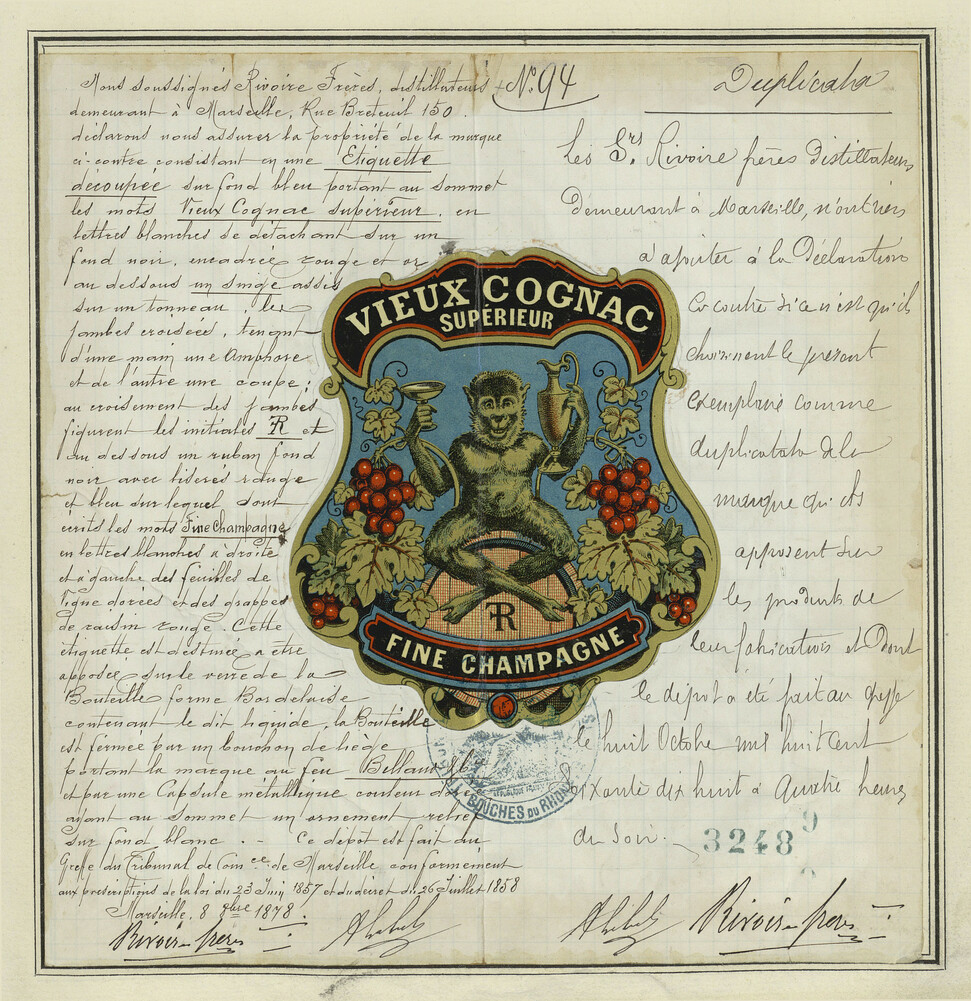 Nous soussignés Rivoire Frères, distillateurs
demeurant à Marseille, Rue Breteuil 150.
déclarons nous assurer la propriété de la marque
ci-contre consistant en une Etiquette
découpée sur fond bleu portant au sommet
les mots Vieux Cognac supérieur. en
lettres blanches se détachant sur un
fond noir, encadrée rouge et or,
au dessous un singe assis
sur un tonneau, les
jambes croisées, tenant
d'une main une Amphore
et de l'autre une coupe;
au croisement des jambes
figurent les initiales FR et
au dessous un ruban fond
noir avec liserés rouge
et bleu sur lequel sont
écrits les mots Fine Champagne
en lettres blanches à droite
et à gauche des feuilles de
Vigne dorées et des grappes
de raisin rouge. Cette
étiquette est destinée a être
apposée sur le verre de la
Bouteille forme Bordelaise
contenant le dit liquide, la Bouteille
est fermée par un bouchon de liège
portant la marque au feu
et par une Capsule métallique couleur dorée
ayant au sommet un ornement relief
sur fond blanc. - Ce dépôt est fait au
Greffe du Tribunal de Com ce de Marseille conformément
aux prescriptions de la loi du 23 Juin 1857 et du décret du 26 Juillet 1858
Marseille, 8 8bre 1878.
Rivoire frères
N° 94
Duplicata
Les Srs Rivoire frères distillateurs
Demeurant à Marseille, n'ont rien
à ajouter à la Déclaration
ci contre si ce n'est qu'ils
choisissent le présent
exemplaire comme
duplicata de la
marque qu'ils
apposent sur
les produits de
leur fabrication et Dont
le dépôt a été fait au greffe
le huit Octobre mil huit cent
Soixante dix huit à Quatre heures
du soir.
3248
9
Rivoire frères
VIEUX COGNAC
SUPÉRIEUR
FR
FINE CHAMPAGNE
BOUCHES DU RHÔNE